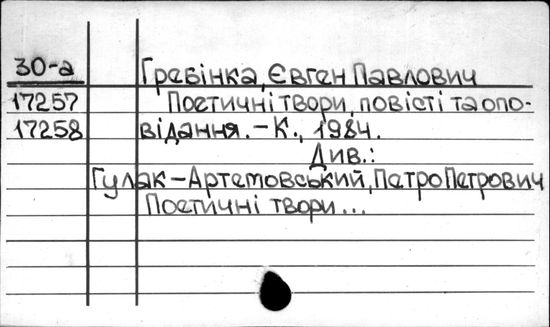 30-а Гребінка, Євген Павлович
17257 Поетичні твори, повісті та опо-
17258 відання. – К., 1984.
Див.:
Гулак-Артемовський, Петро Петрович
Поетичні твори...